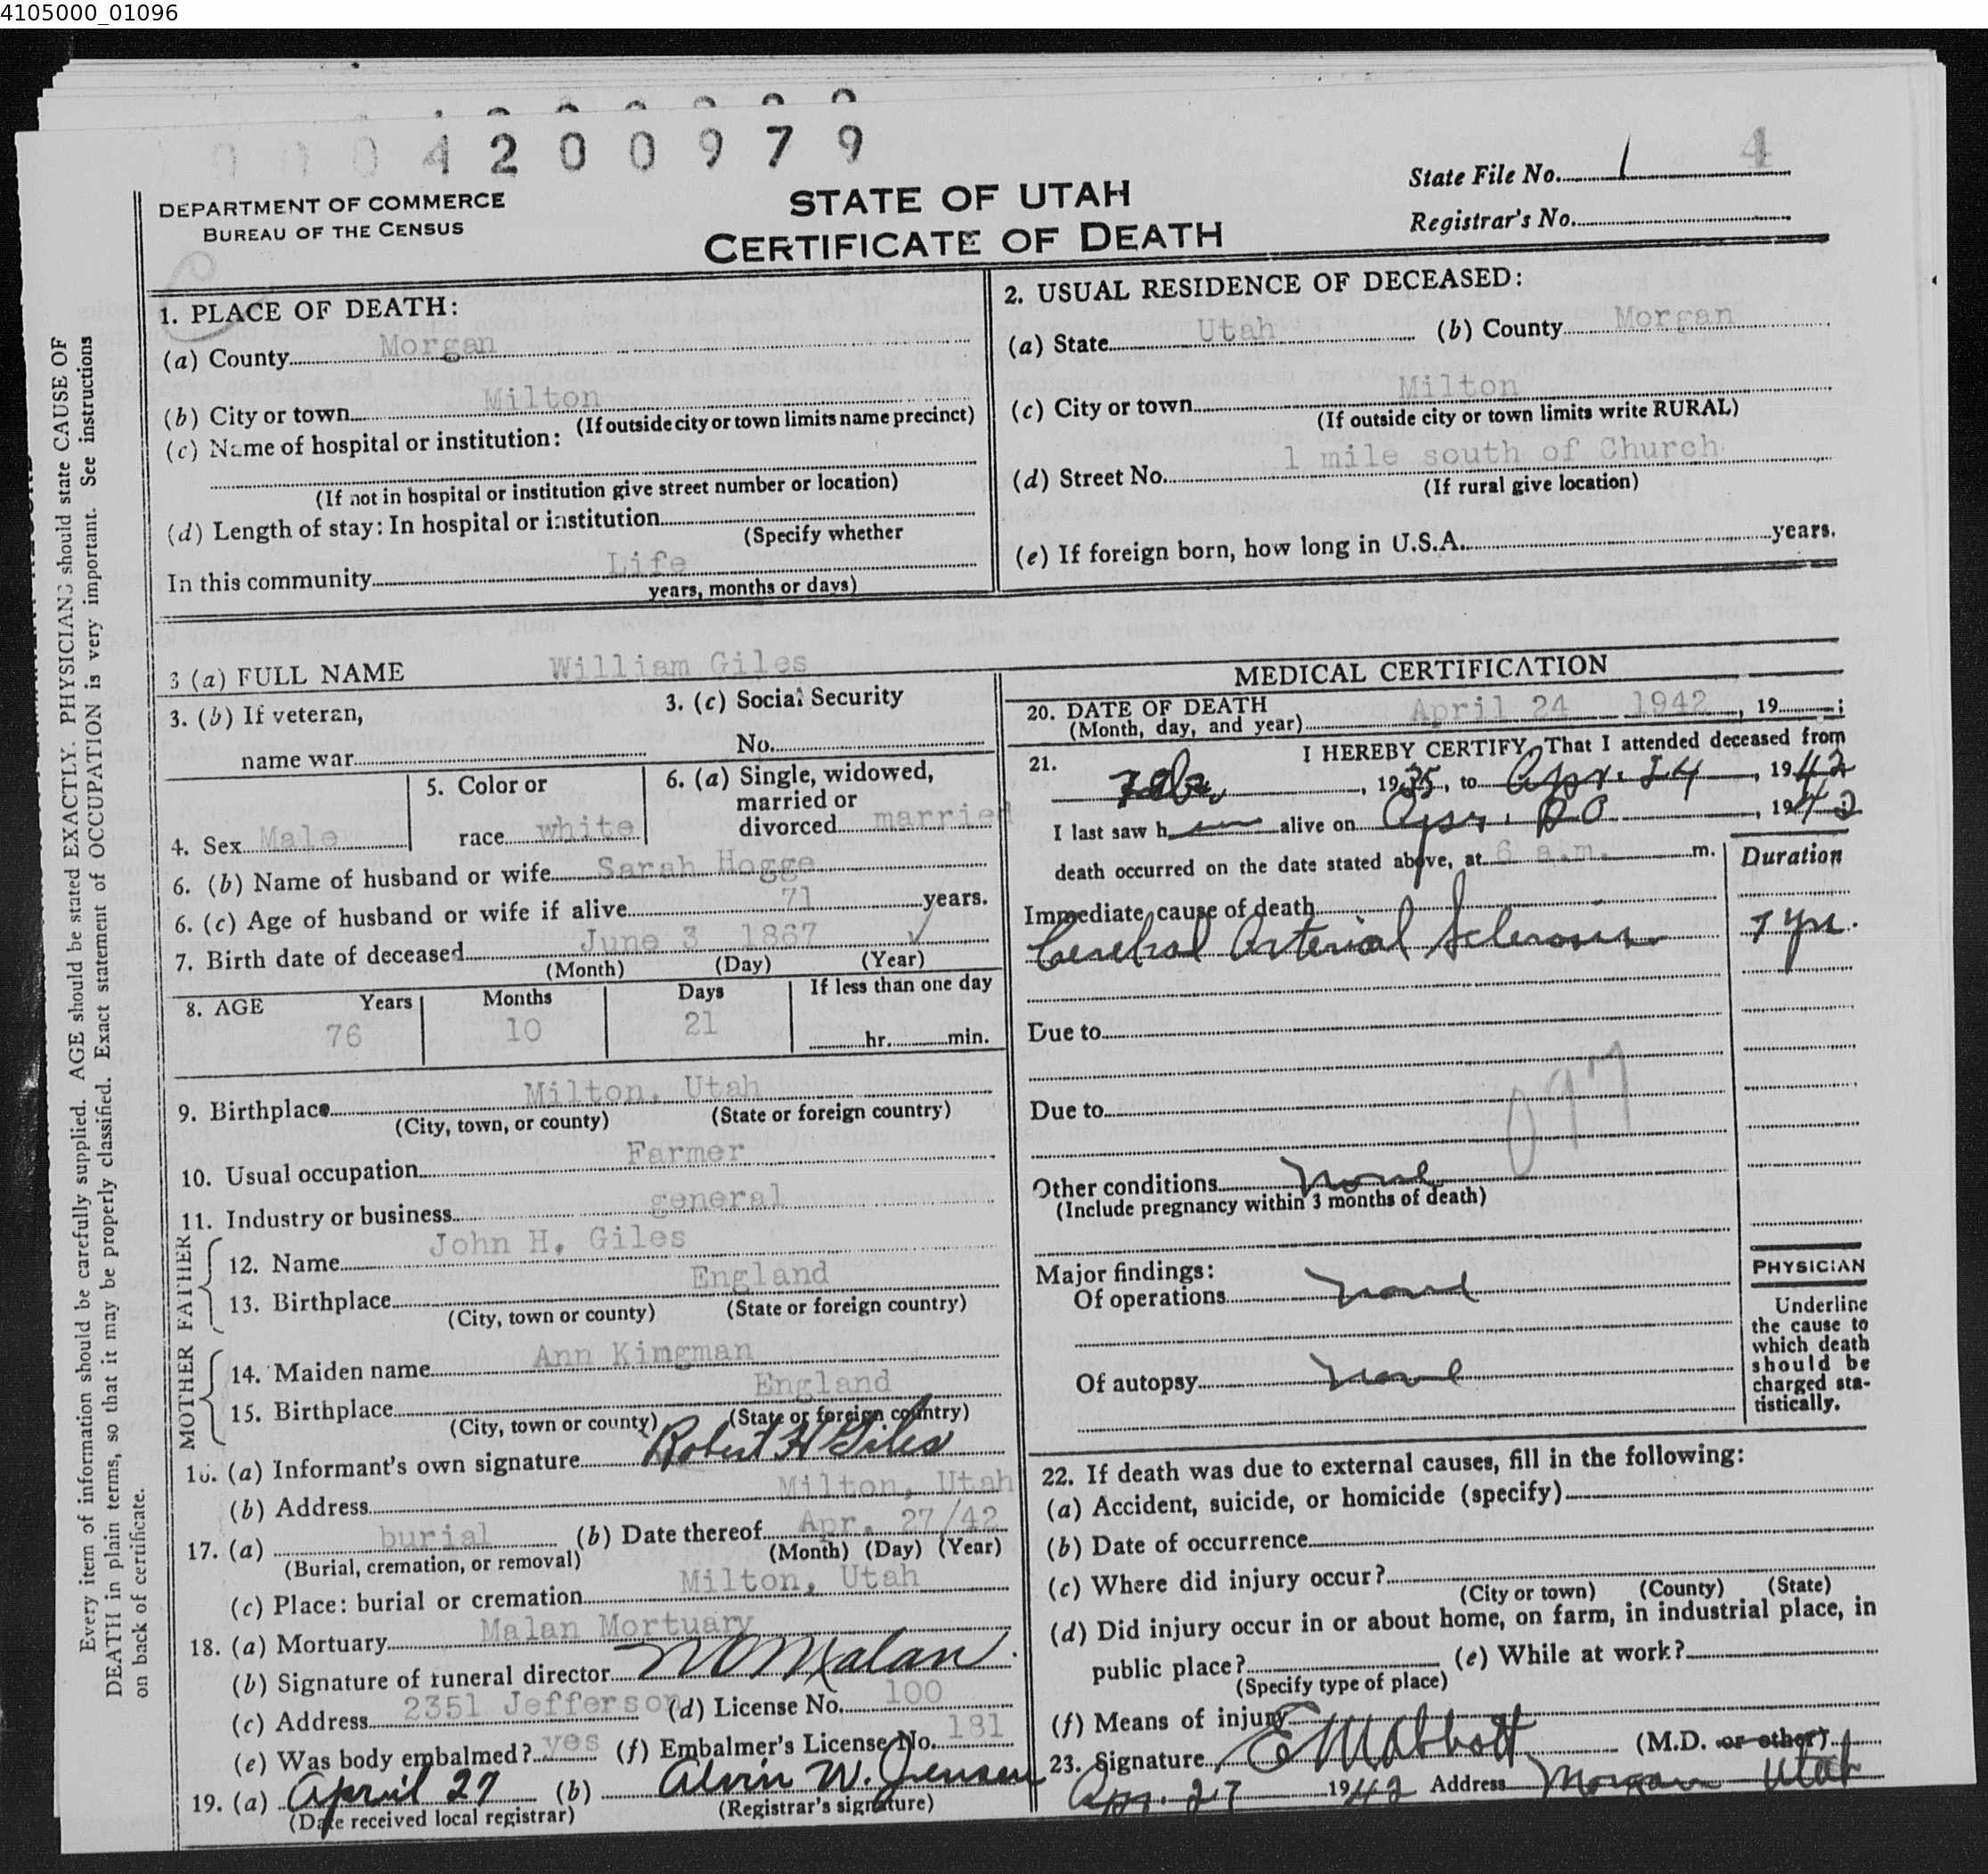 4105000_01096
0004200979
State File No. 1 4
Registrar's No.
DEPARTMENT OF COMMERCE
BUREAU OF THE CENSUS
STATE OF UTAH
CERTIFICATE OF DEATH
Every item of information should be carefully supplied. AGE should be stated EXACTLY. PHYSICIANS should state CAUSE OF
DEATH in plain terms, so that it may be properly classified. Exact statement of OCCUPATION is very important. See instructions
on back of certificate.
1. PLACE OF DEATH:
(a) County Morgan
(b) City or town Milton
(If outside city or town limits name precinct)
(c) Name of hospital or institution:
(If not in hospital or institution give street number or location)
(d) Length of stay: In hospital or institution
(Specify whether
In this community Life
years, months or days)
2. USUAL RESIDENCE OF DECEASED:
(a) State Utah (b) County Morgan
(c) City or town Milton
(If outside city or town limits write RURAL)
(d) Street No. 1 mile south of Church
(If rural give location)
(e) If foreign born, how long in U.S.A. years.
3 (a) FULL NAME William Giles
3. (b) If veteran,
name war
3. (c) Social Security
No.
4. Sex Male
5. Color or
race white
6. (a) Single, widowed,
married or
divorced married
6. (b) Name of husband or wife Sarah Hogge
6. (c) Age of husband or wife if alive 71 years.
7. Birth date of deceased June 3 1867
(Month) (Day) (Year)
8. AGE Years Months Days If less than one day
76 10 21 hr. min.
9. Birthplace Milton, Utah
(City, town, or county) (State or foreign country)
10. Usual occupation Farmer
11. Industry or business general
FATHER
12. Name John H. Giles
13. Birthplace England
(City, town or county) (State or foreign country)
MOTHER
14. Maiden name Ann Kingman
15. Birthplace England
(City, town or county) (State or foreign country)
16. (a) Informant's own signature Robert H Giles
(b) Address Milton, Utah
17. (a) burial (b) Date thereof Apr. 27/42
(Burial, cremation, or removal) (Month) (Day) (Year)
(c) Place: burial or cremation Milton, Utah
18. (a) Mortuary Malan Mortuary
(b) Signature of funeral director Malan
(c) Address 2351 Jefferson (d) License No. 100
(e) Was body embalmed? yes (f) Embalmer's License No. 181
19. (a) April 27 (b) Alvin W. Jensen
(Date received local registrar) (Registrar's signature)
MEDICAL CERTIFICATION
20. DATE OF DEATH
(Month, day, and year) April 24 1942, 19 ;
21. I HEREBY CERTIFY, That I attended deceased from
Feb, 1935, to Apr. 24, 1942
I last saw him alive on Apr. 20, 1942
death occurred on the date stated above, at 6 a.m. m.
Duration
Immediate cause of death
Cerebral Arterial Sclerosis 7 yrs.
Due to
Due to
097
Other conditions none
(Include pregnancy within 3 months of death)
Major findings:
Of operations none
Of autopsy none
PHYSICIAN
Underline
the cause to
which death
should be
charged sta-
tistically.
22. If death was due to external causes, fill in the following:
(a) Accident, suicide, or homicide (specify)
(b) Date of occurrence
(c) Where did injury occur?
(City or town) (County) (State)
(d) Did injury occur in or about home, on farm, in industrial place, in
public place? (e) While at work?
(Specify type of place)
(f) Means of injury
23. Signature E M Abbott (M.D. or other)
Apr. 27 1942 Address Morgan Utah